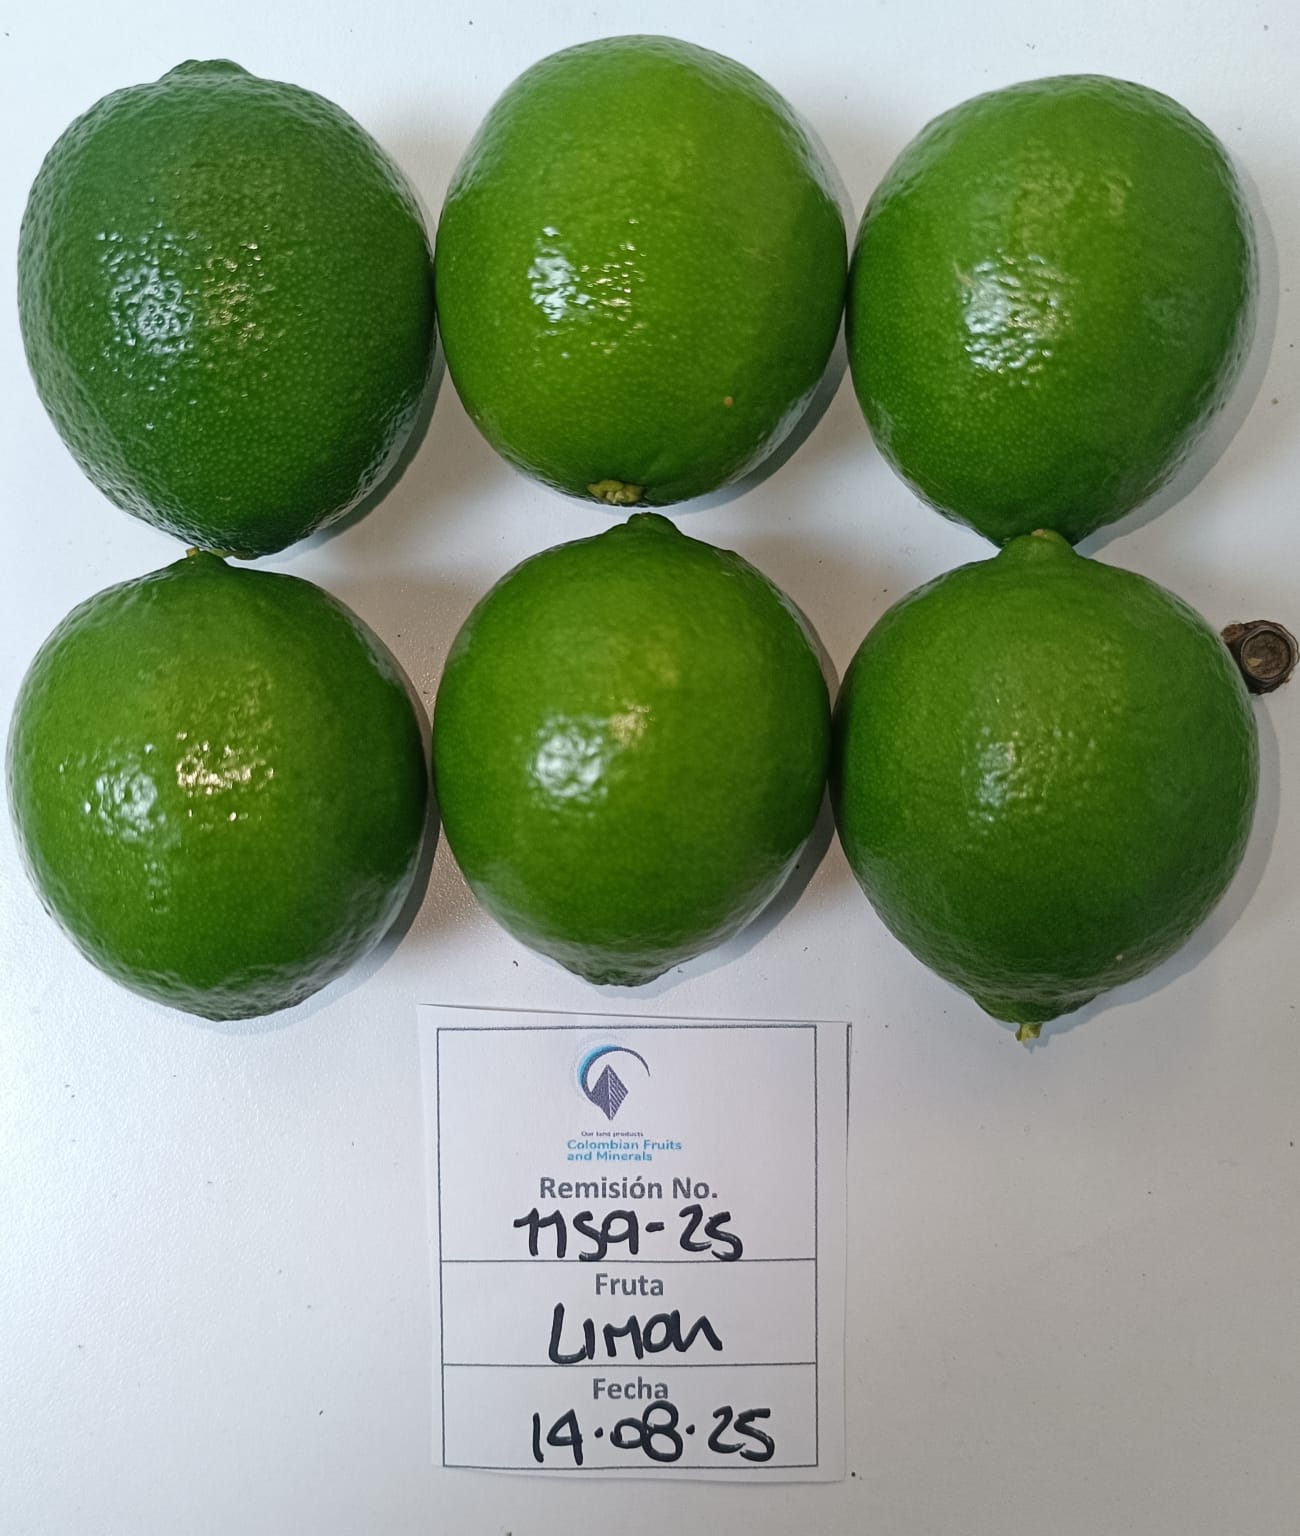 Our land products
Colombian Fruits
and Minerals
Remisión No.
1159-25
Fruta
Limon
Fecha
14.08.25